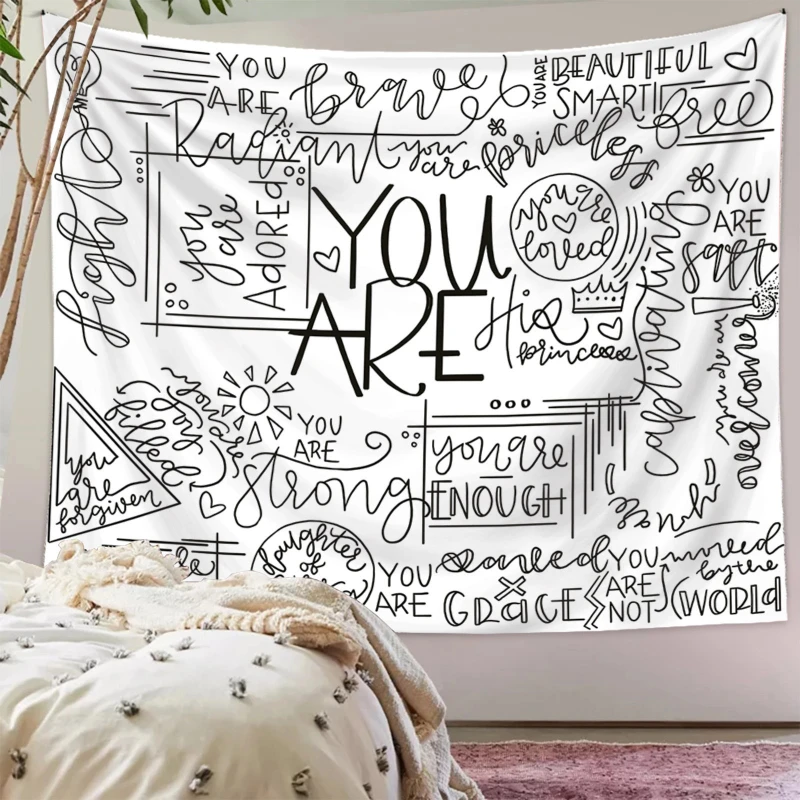 YOU
ARE
brave
YOU ARE
BEAUTIFUL
SMART!
free
Radiant
you
are
priceless
light
you
are
ADORED
YOU
ARE
you are
loved
His
princess
captivating
YOU
ARE
salt
you are an
overcomer
you are
joy
filled
YOU
ARE
strong
you are
ENOUGH
you
are
forgiven
daughter
of
YOU
ARE
saved
x
GRACE
YOU
ARE
NOT
moved
by the
WORLD